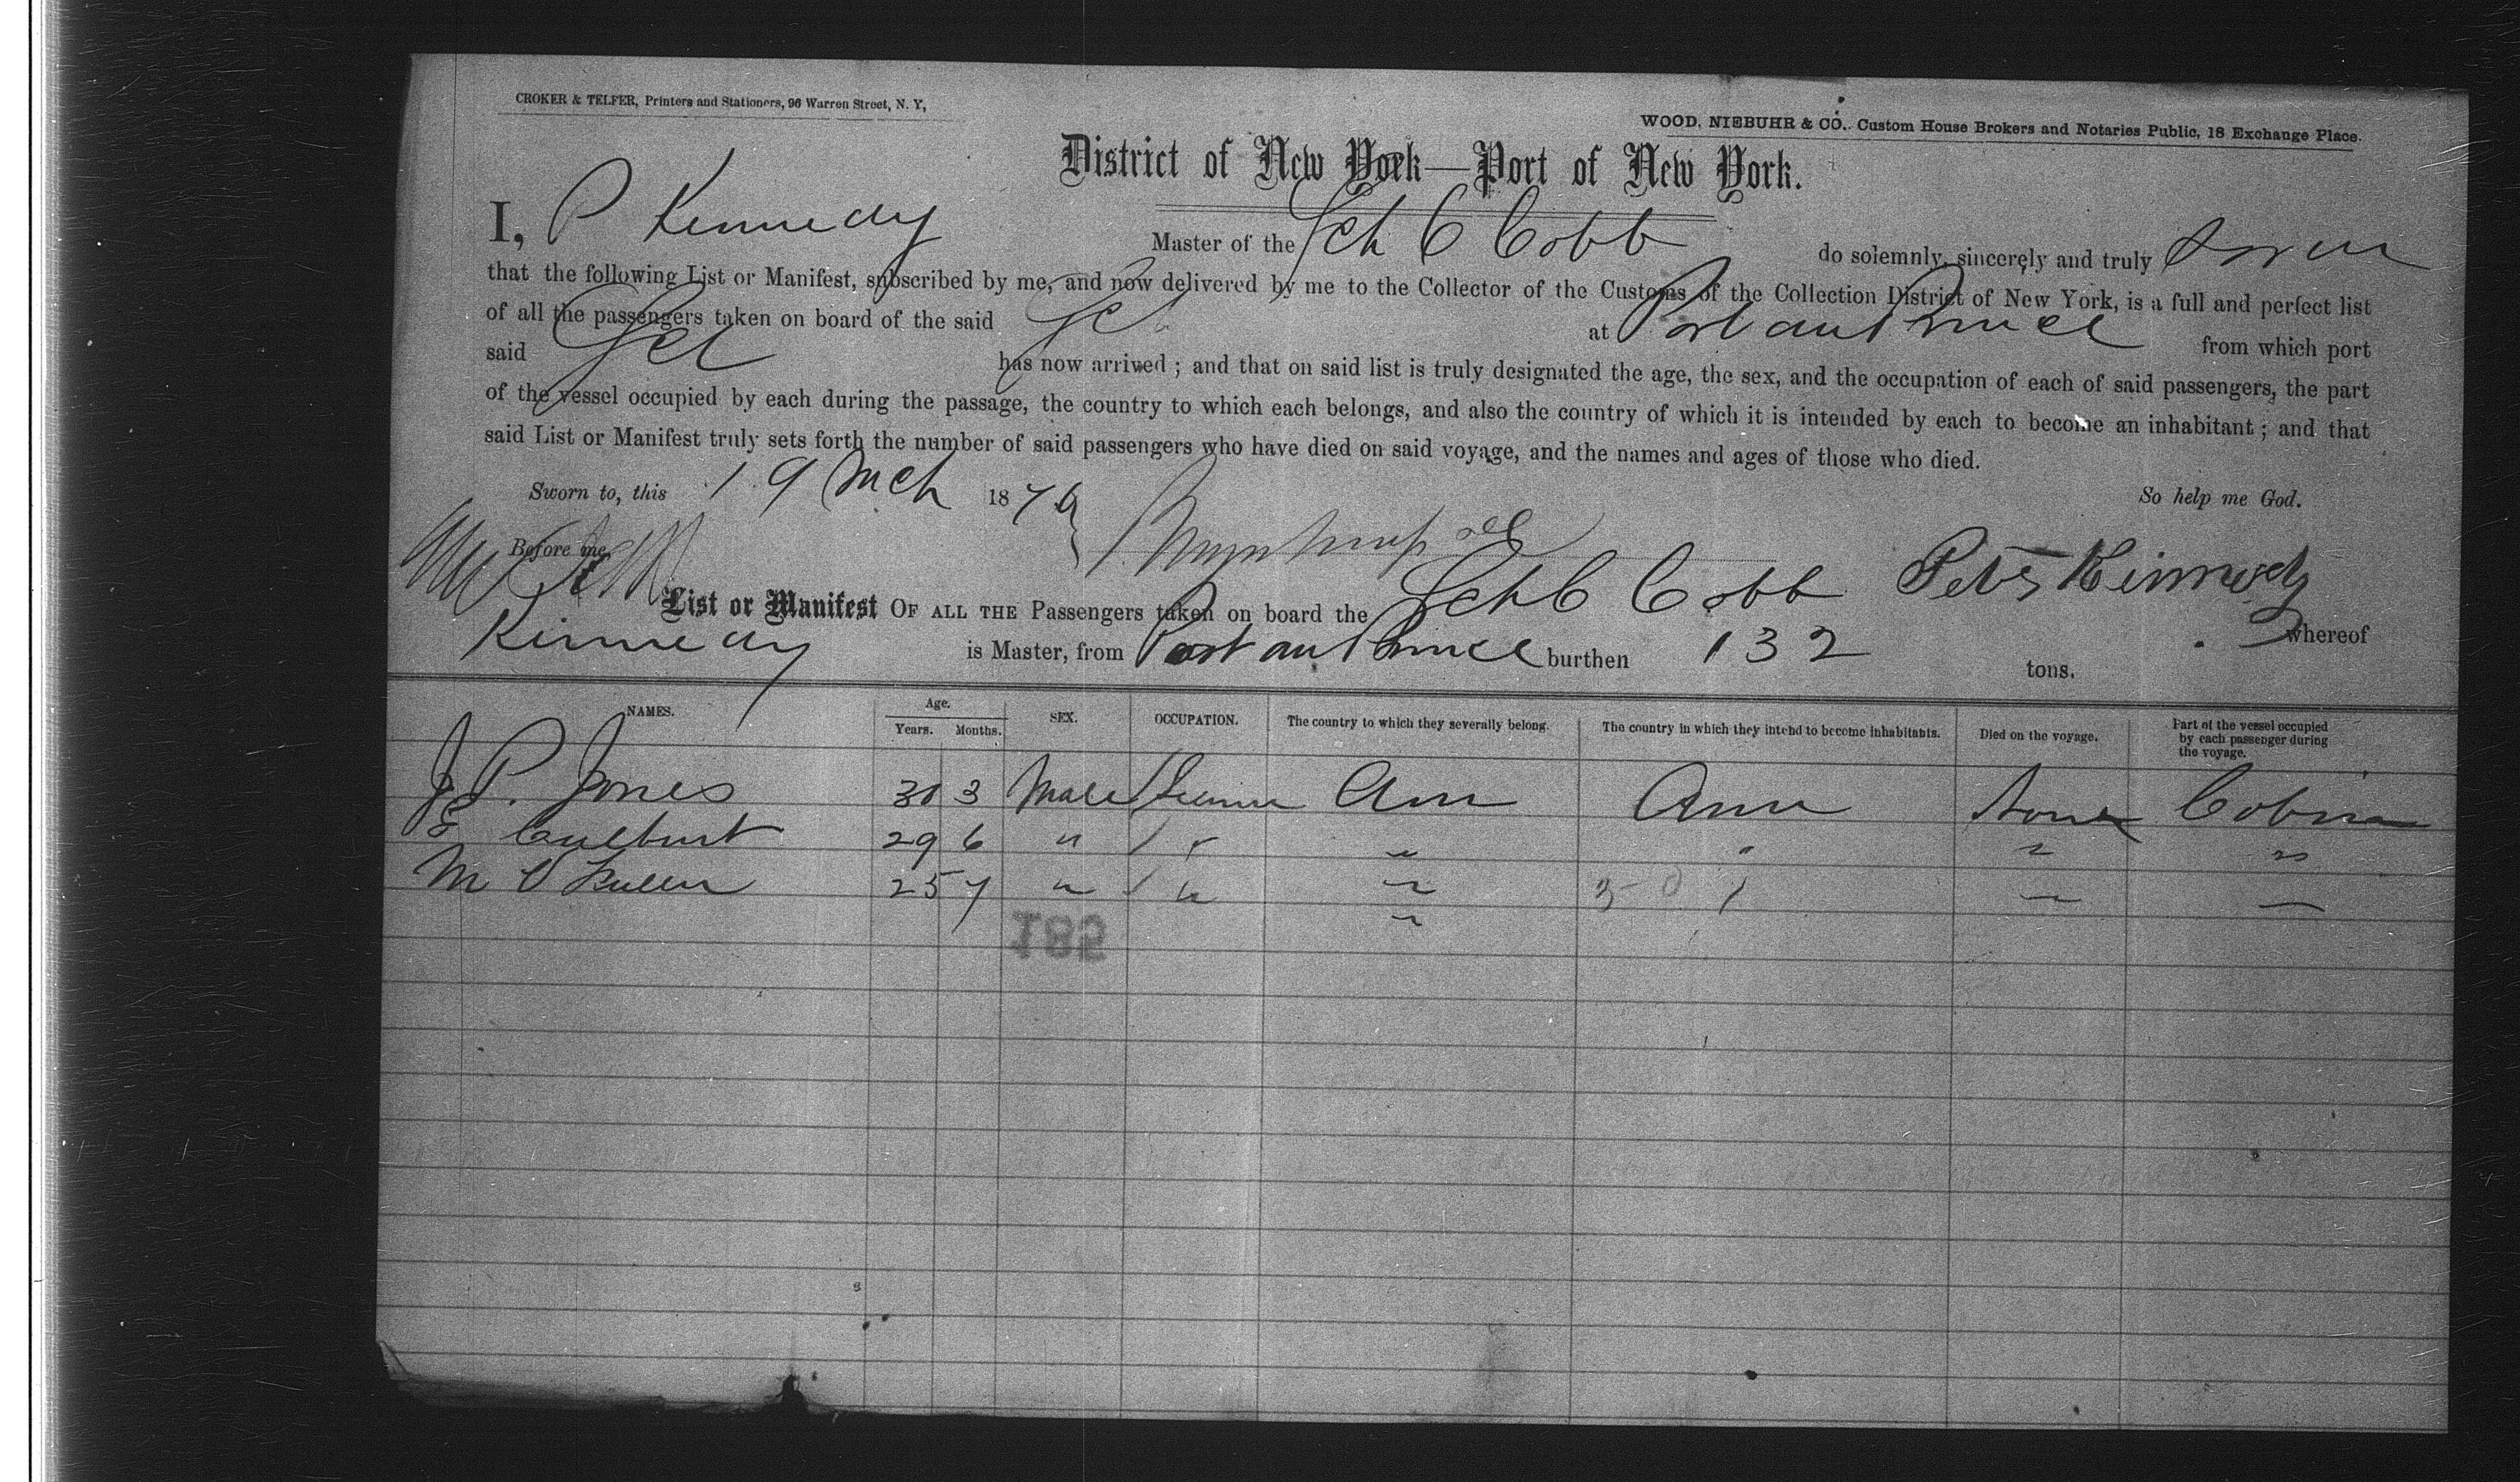 CROKER & TELFER, Printers and Stationers, 96 Warren Street, N. Y,
WOOD, NIEBUHR & CO., Custom House Brokers and Notaries Public, 18 Exchange Place.
District of New York—Port of New York.
I, P Kennedy Master of the Sch C Cobb do solemnly, sincerely and truly
that the following List or Manifest, subscribed by me, and now delivered by me to the Collector of the Customs of the Collection District of New York, is a full and perfect list
of all the passengers taken on board of the said Sch at Port au Prince from which port
said Sch has now arrived ; and that on said list is truly designated the age, the sex, and the occupation of each of said passengers, the part
of the vessel occupied by each during the passage, the country to which each belongs, and also the country of which it is intended by each to become an inhabitant ; and that
said List or Manifest truly sets forth the number of said passengers who have died on said voyage, and the names and ages of those who died.
Sworn to, this 19 Mch 1879 So help me God.
Before me,
Peter Kennedy
List or Manifest OF ALL THE Passengers taken on board the Sch C Cobb whereof
Kennedy is Master, from Port au Prince burthen 132 tons.
NAMES. Age. Years. Months. SEX. OCCUPATION. The country to which they severally belong. The country in which they intend to become inhabitants. Died on the voyage. Part of the vessel occupied by each passenger during the voyage.
J P. Jones 30 3 Male Am Am None Cabin
29 6 "
M O 25 7 "
185